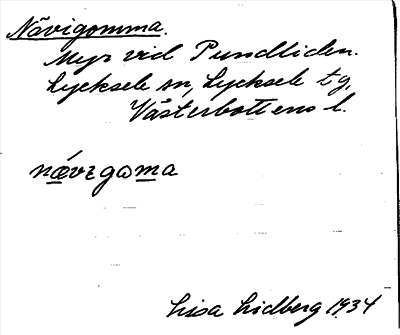 Nävigomma.
Myr vid Pundliden.
Lycksele sn, Lycksele tg,
Västerbottens l.
nævıgωma
Lisa Lidberg 1934